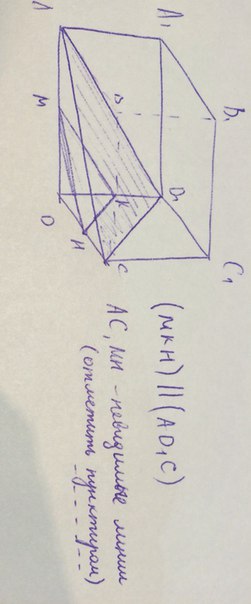 A
A₁
B
B₁
M
D
K
D₁
H
C
C₁
(МКН) || (AD₁C)
AC, МН - невидимые линии
(отметить пунктиром)